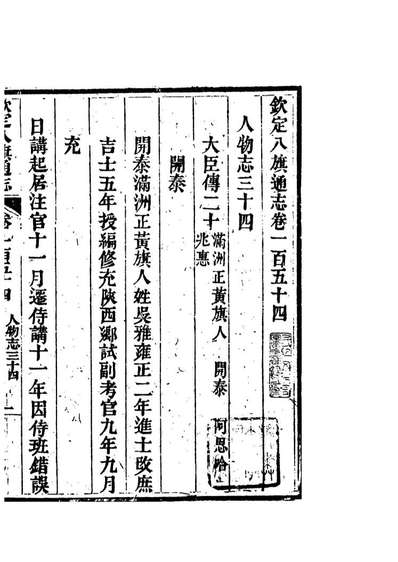 欽定八旗通志卷一百五十四
人物志三十四
大臣傳二十 滿洲正黃旗人 開泰 阿思哈
兆惠
開泰
開泰滿洲正黃旗人姓吳雅雍正二年進士改庶
吉士五年授編修充陝西鄉試副考官九年九月
充
日講起居注官十一月遷侍講十一年因侍班錯誤
欽定八旗通志 卷一百五十四 人物志三十四 一